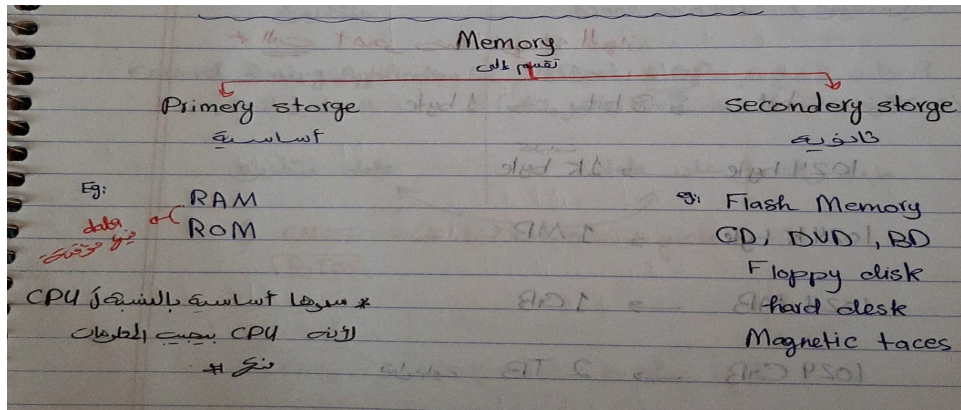 Memory
تقسم إلى
Primery storge
أساسية
Eg:
RAM
ROM
data
* أساسية بالنسبة ل CPU
لأنه CPU بيجيب المعلومات
منع *
secondery storge
ثانوية
eg: Flash Memory
CD, DVD, BD
Floppy disk
hard desk
Magnetic taces